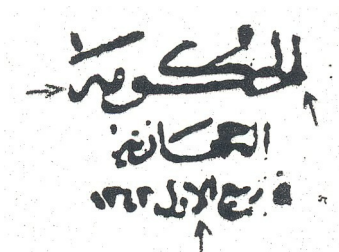 للحكومة
العمانية
ربيع الاول ١٣٤٢